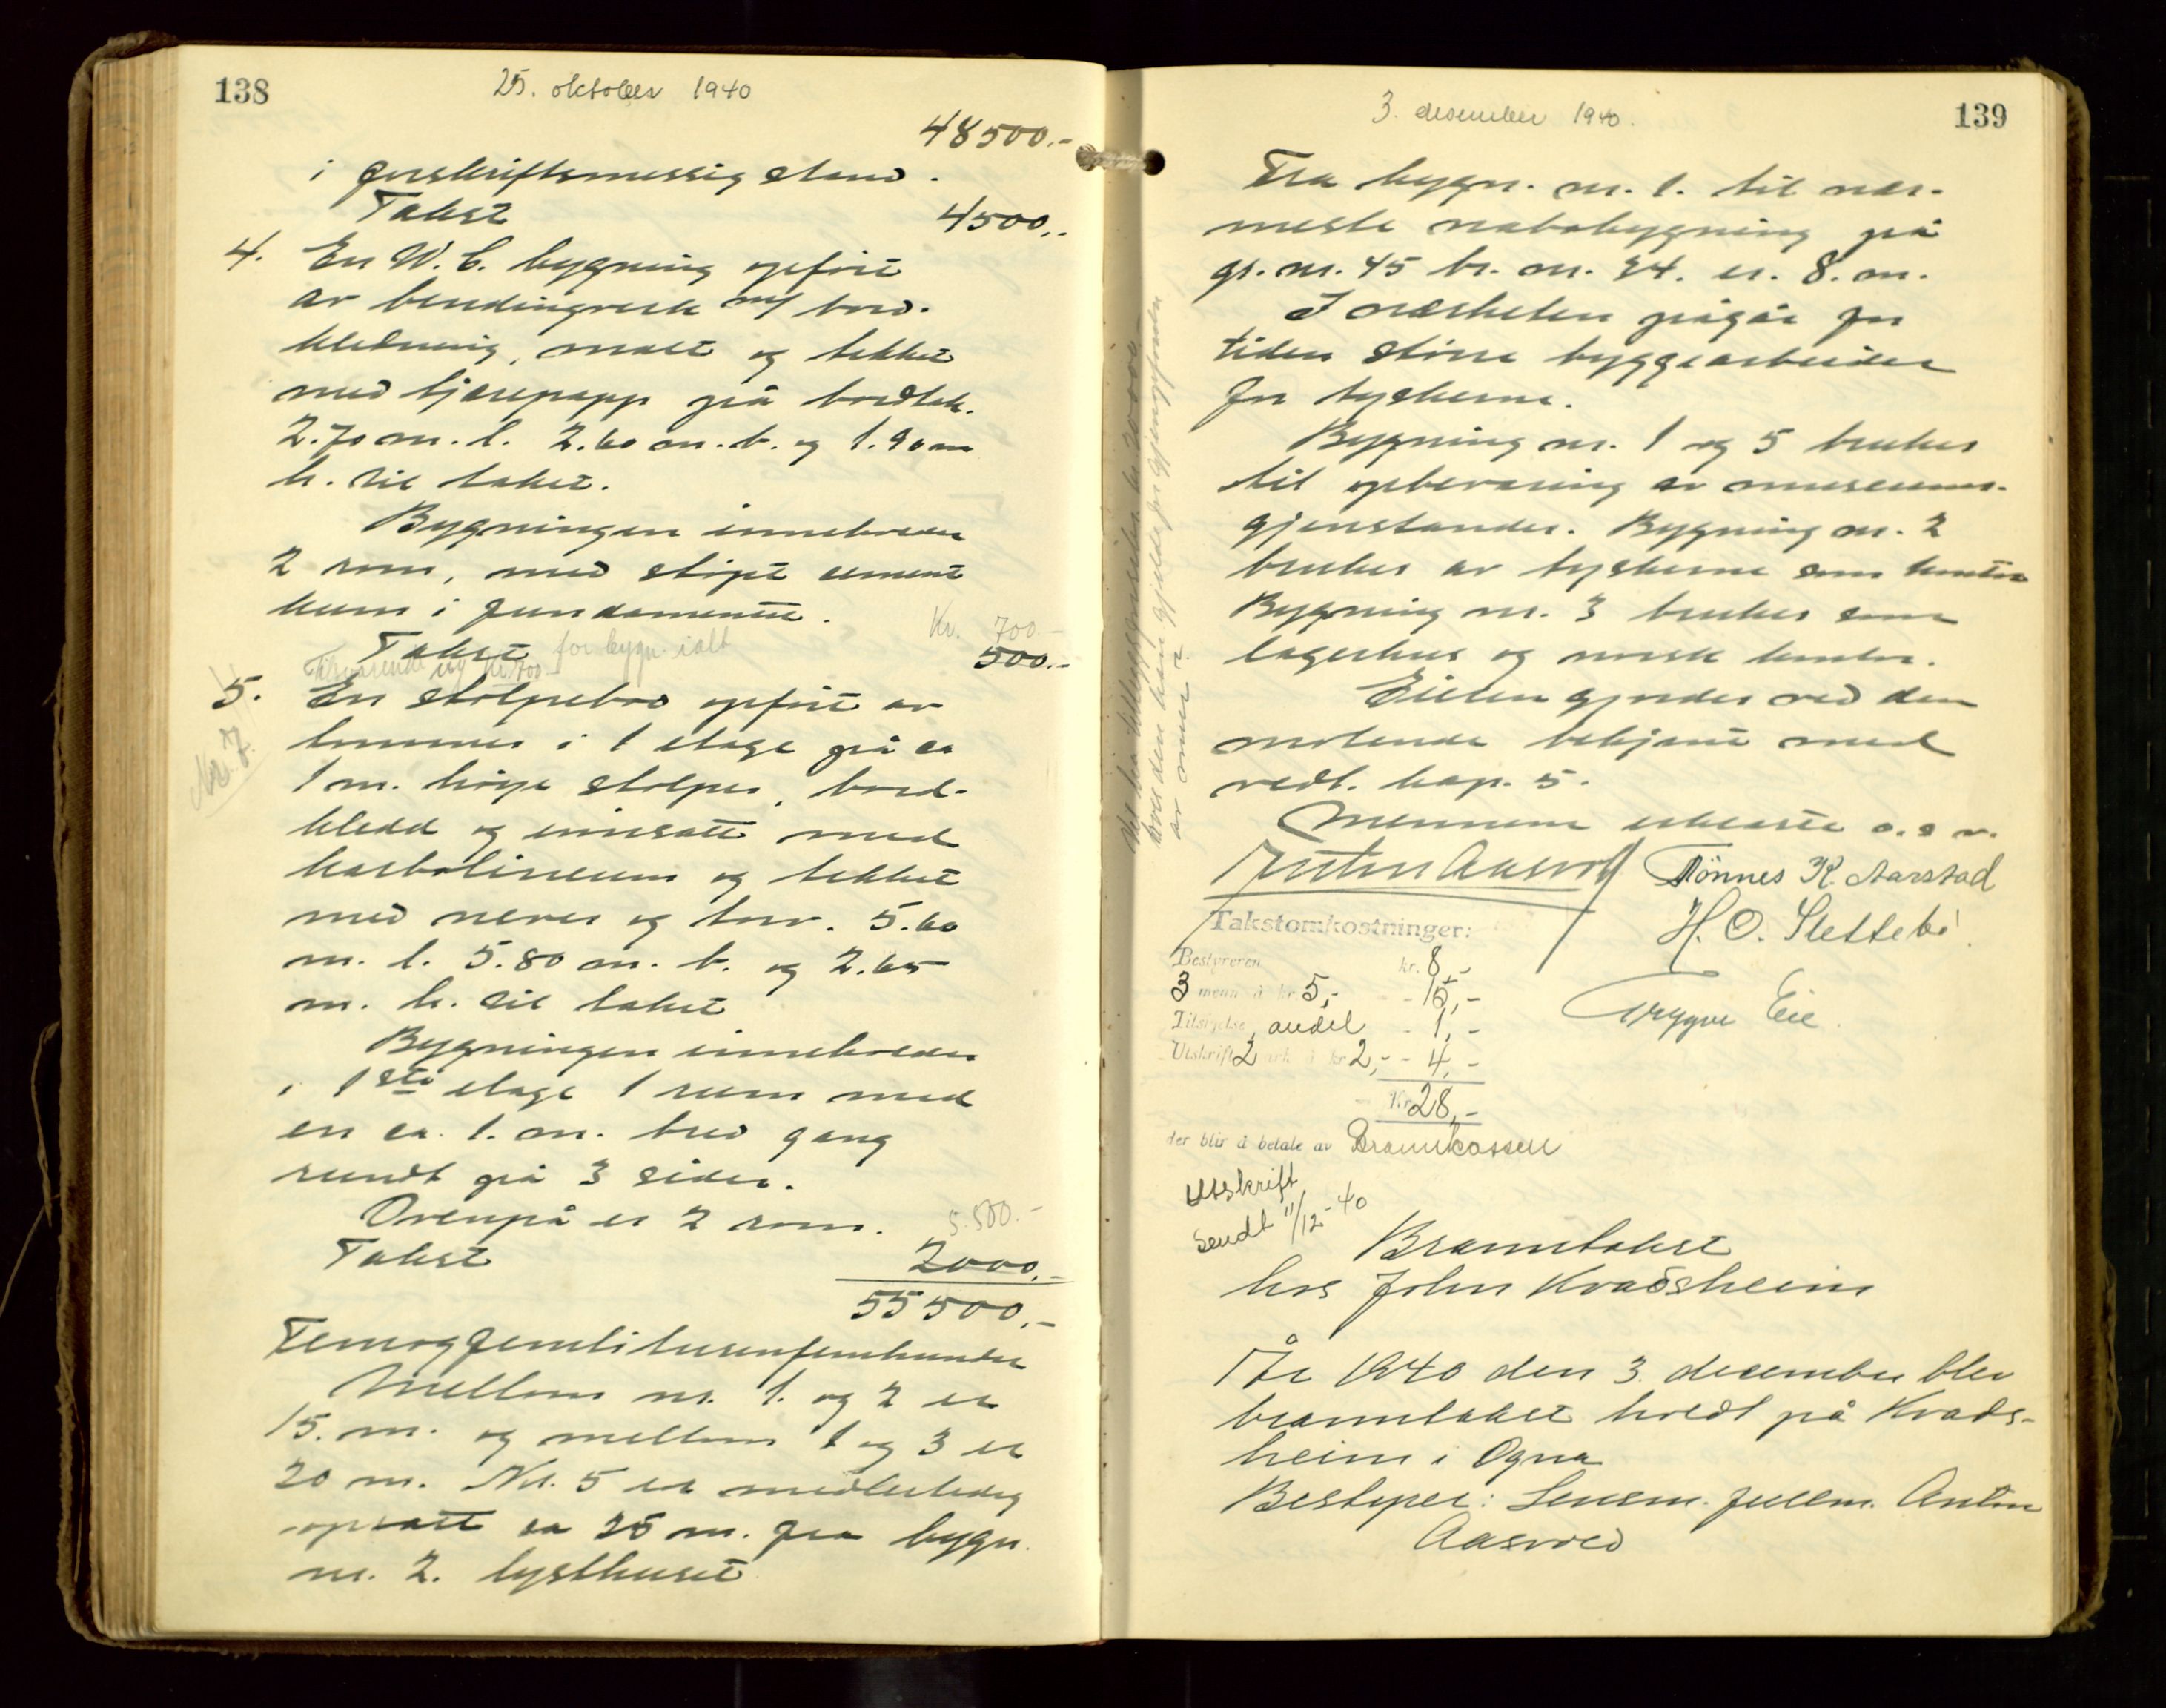 138
25. oktober 1940
48500.-
i forskriftsmessig stand.
Takst 4500.-
4. En W. C. bygning opført
av bindingverk m/ bord-
kledning, malt og tekket
med tjærepapp på bordtak.
2.70 m. l. 2.60 m. b. og 1.90 m
h. til taket.
Bygningen inneholder
2 rom, med støpt cement
kum i fundamentet.
Kr. 700.-
Takst for bygn. ialt 500.-
Tilsvarende ny kr. 700.-
5. En stolpebod opført av
Nr. 7.
tømmer i 1 etage på ca
1 m. høge stolper, bord-
kledd og innsatt med
karbolineum og tekket
med never og torv. 5.60
m. l. 5.80 m. b. og 2.65
m. h. til taket
Bygningen inneholder
i 1ste etage 1 rum med
en ca. 1. m. bred gang
rundt på 3 sider.
Ovenpå er 2 rom.
5.500.-
Takst 2000.-
55500.-
Femogfemtitusenfemhundre
Mellom nr. 1. og 2 er
15. m. og mellom 1 og 3 er
20 m. Nr. 5 er midlertidig
opsatt ca 25 m. fra bygn.
nr. 2. lysthuset
139
3. desember 1940.
Fra bygn. nr. 1. til nær-
meste nabobygning på
gr. nr. 45 br. nr. 34. er. 8. m.
I nærheten pågår for
tiden større byggearbeider
for tyskerne.
Bygning nr. 1 og 5 brukes
til opbevaring av museums-
gjenstander. Bygning nr. 2
brukes av tyskerne som kontor
Bygning nr. 3 brukes som
lagerhus og norsk kontor.
Eieren gjordes ved den
møtende bekjent med
vedt. kap. 5.
Mennene erklærte o. s. v.
Anton Aasvold Tönnes K. Aarstad
H. O. Slettebö
Trygve Eie
Takstomkostninger:
Bestyreren kr. 8,-
3 menn à kr. 5,- - 15,-
Tilsigelse, andel - 1,-
Utskrift 2 ark à kr 2,- - 4,-
Kr. 28,-
der blir å betale av Brannkassen
Utskrift
sendt 11/12-40
Branntakst
hos John Kvadsheim
År 1940 den 3. december blev
branntakst holdt på Kvads-
heim i Ogna
Bestyrer: Lensm. fullm. Anton
Aasvold